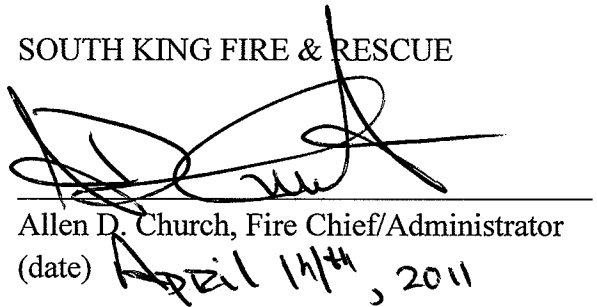 SOUTH KING FIRE & RESCUE
Allen D. Church, Fire Chief/Administrator
(date) April , 2011